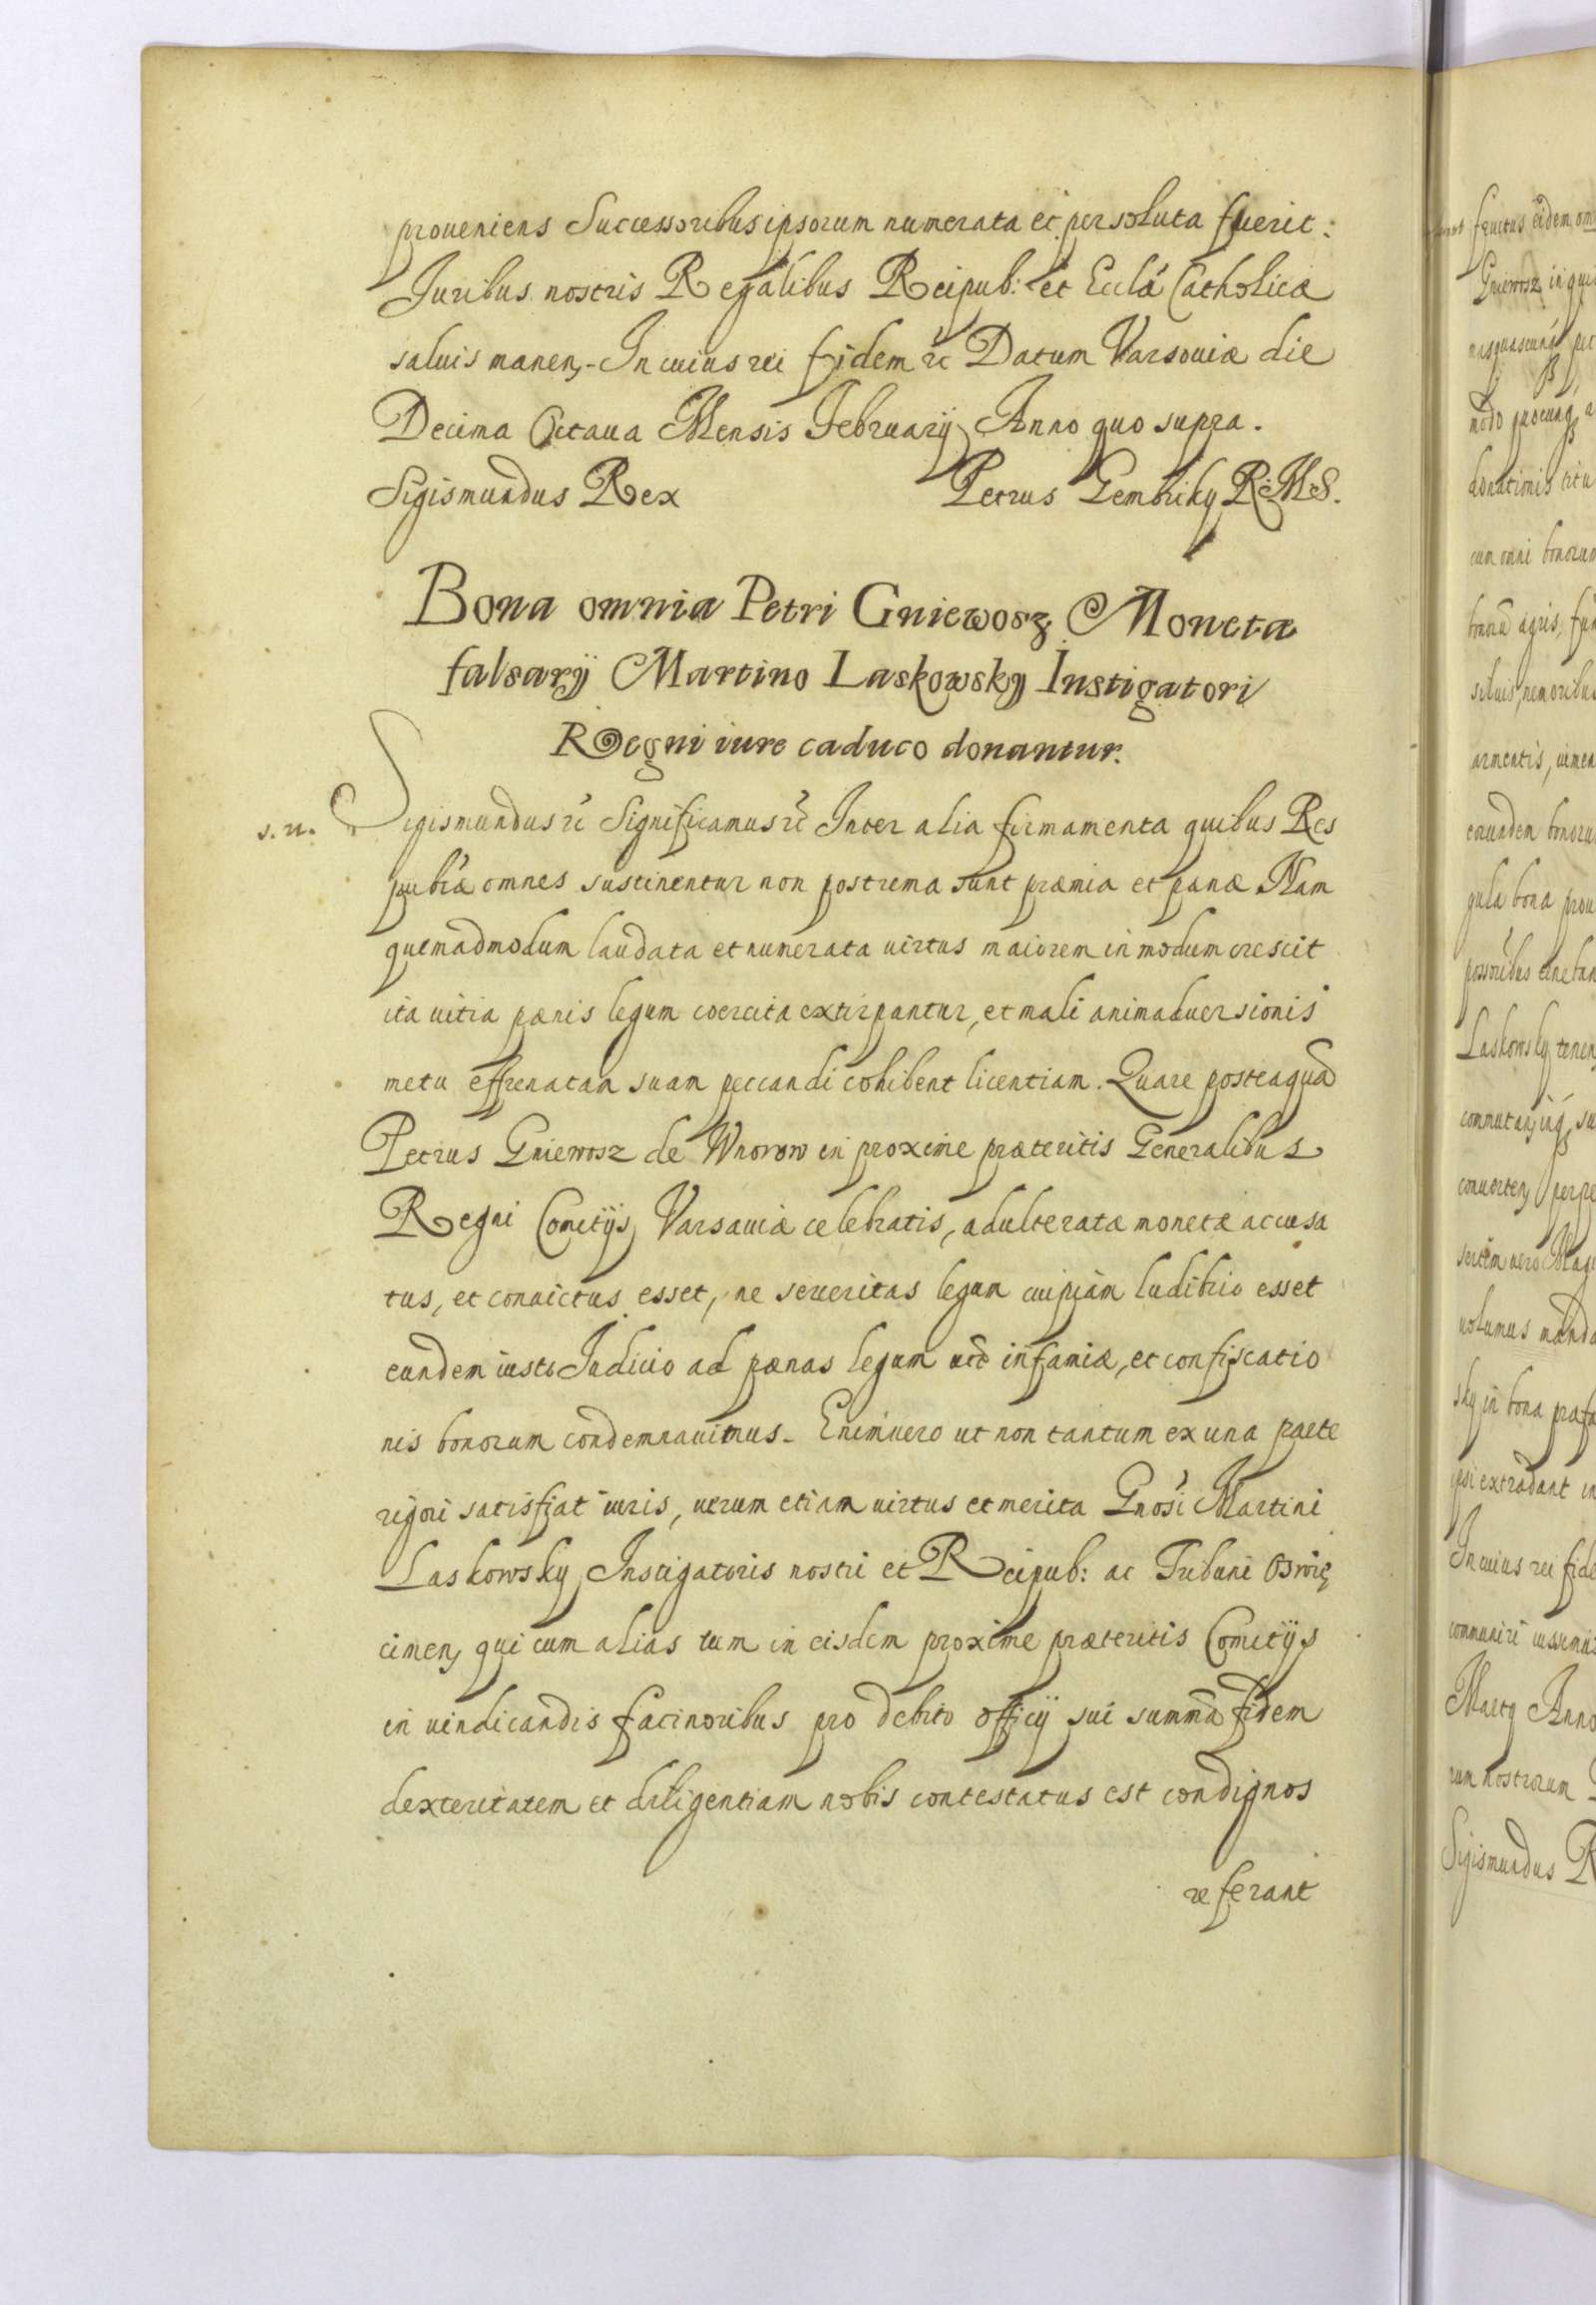 proueniens Successoribus ipsorum numerata et persoluta fuerit:
Iuribus nostris Regalibus Reipub: et Ecclae Catholicæ
saluis manen, - In cuius rei fidem rc Datum Varsouiæ die
Decima Octaua Mensis February Anno quo supra.
Sigismundus Rex Petrus Gembiky R: M: S.
Bona omnia Petri Gniewosz Moneta
falsarÿ Martino Laskowsky Instigatori
Regni iure caduco donantur.
s. n. Sigismundus rc Significamus rc Inter alia firmamenta quibus Res
pubcæ omnes sustinentur non postrema sunt præmia et pænæ Nam
quemadmodum laudata et numerata uirtus maiorem in modum crescit
ita uitia pænis legum coercita extirpantur, et mali animaduersionis
metu effrenatam suam peccandi cohibent licentiam. Quare posteaquã
Petrus Gniewosz de Wnorow in proxime præteritis Generalibus
Regni Comitÿs Varsauiæ celebratis, adulteratæ monetæ accusa
tus, et conuictus esset, ne seueritas legum cuipiam ludibrio esset
eundem iusto Iudicio ad pænas legum uct infamiæ, et confiscatio
nis bonorum condemnauimus - Enimuero ut non tantum ex una parte
rigori satisfiat iuris, uerum etiam uirtus et merita Gnosi Martini
Laskowsky Instigatoris nostri et Reipub: ac Tribuni Oswię
cimen, qui cum alias tum in eisdem proxime præteritis Comitÿs
in uindicandis facinoribus pro debito officÿ sui summã fidem
dexteritatem et diligentiam nobis contestatus est condignos
referant
fructus eidem
Gniewosz in
modo
donationis titu
cum omni bonorum
bonorũ agris,
siluis, nemoribus
armentis,
eorundem bonoru
gula bona
Laskowsky tenen,
commutan,
conuerten,
uolumus manda
sky in bona præfa
ipsi extradant in
In cuius rei fide
communiri iussimus
Martÿ Anno
rum nostrorum
Sigismundus R